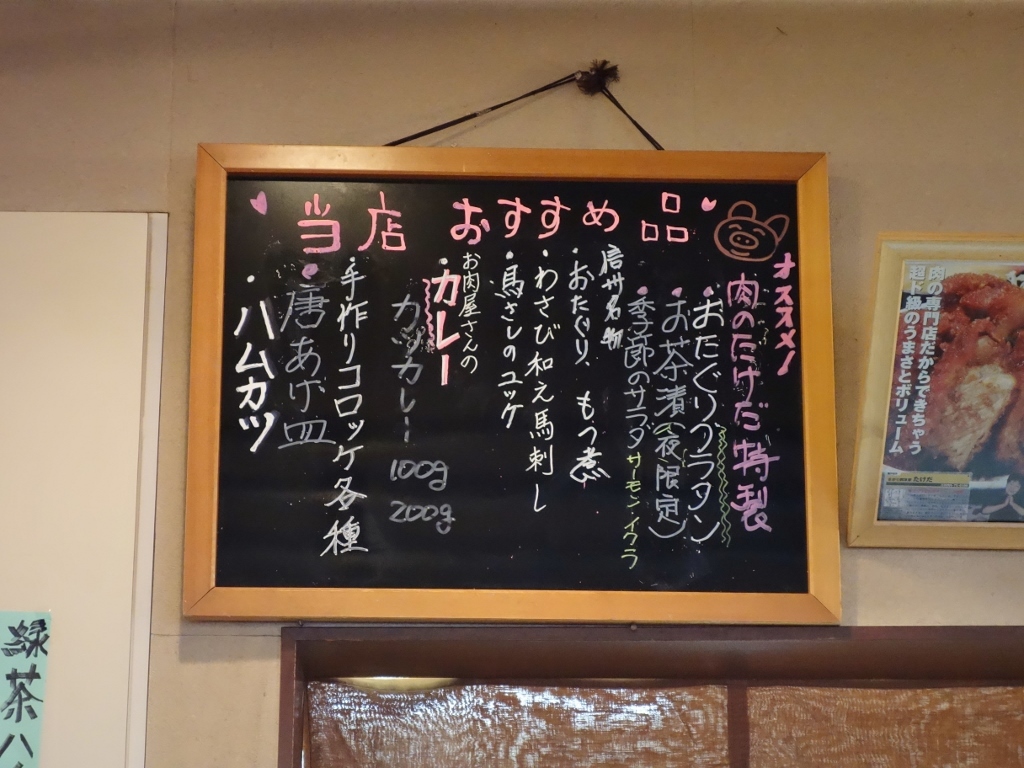 当店 おすすめ品
オススメ!
肉のたけだ特製
・おたぐりグラタン
・お茶漬(夜限定)
・季節のサラダ サーモン イクラ
信州名物
・おたぐり、もつ煮
・わさび和え馬刺し
・馬さしのユッケ
お肉屋さんの
・カレー
カツカレー 100g
200g
・手作りコロッケ各種
・唐あげ皿
・ハムカツ
肉の専門店だからできちゃう
超ド級のうまさとボリューム
たけだ
緑茶ハ